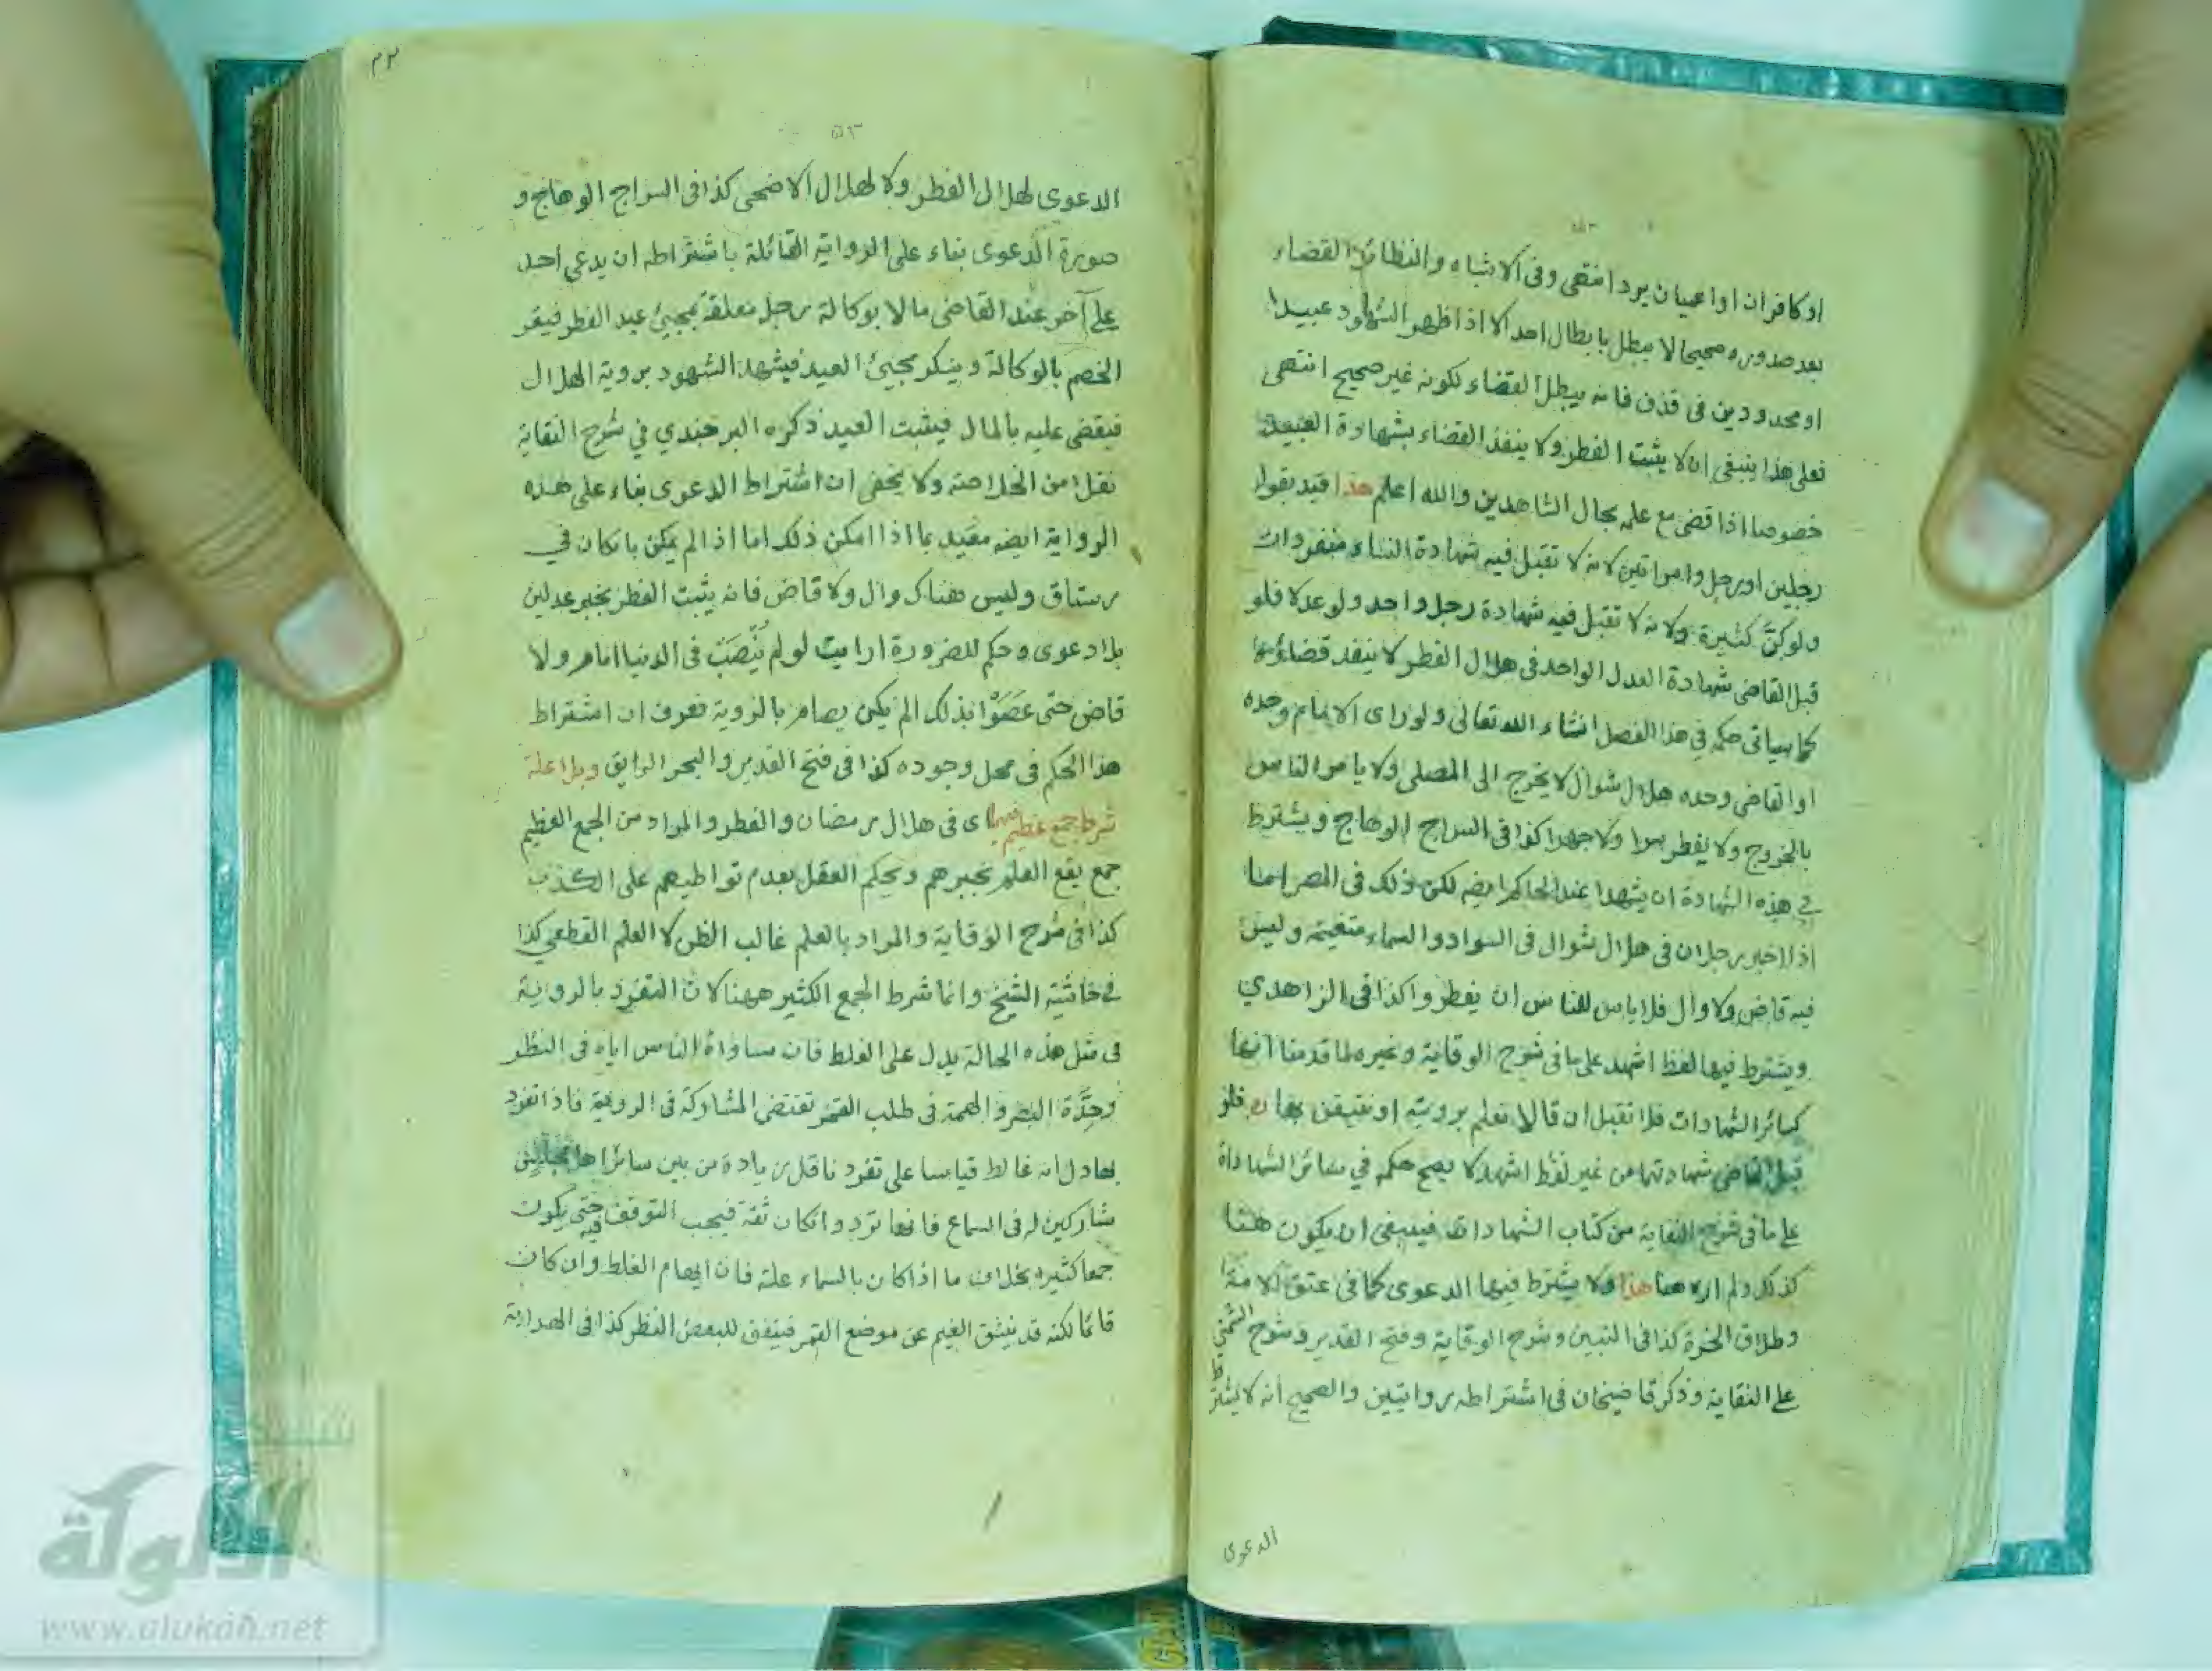 او كافران او اعميان يرد انتهى وفى الاشباه والنظائر القضاء
بعد صدوره صحيحا لا يبطل بابطال احد الا اذا ظهر الشهود عبيدا
او محدودين فى قذف فانه يبطل القضاء لكونه غير صحيح انتهى
فعلى هذا ينبغى ان لا يثبت الفطر ولا ينفذ القضاء بشهادة العبيد
خصوصا اذا قضى مع علمه بحال الشاهدين والله اعلم هذا قيد بقوله
رجلين او رجل وامراتين لانه لا تقبل فيه شهادة النساء منفردات
ولو كنّ كثيرة ولانه لا تقبل فيه شهادة رجل واحد ولو عدلا فلو
قبل القاضى شهادة العدل الواحد فى هلال الفطر لا ينفذ قضاؤه
كما سياتى حكمه فى هذا الفصل انشاء الله تعالى ولو راى الامام وحده
او القاضى وحده هلال شوال لا يخرج الى المصلى ولا يامر الناس
بالخروج ولا يفطر سرا ولا جهرا كذا فى السراج الوهاج ويشترط
فى هذه الشهادة ان يشهدا عند الحاكم ايضه لكن ذلك فى المصر اما
اذا اخبر رجلان فى هلال شوال فى السواد والسماء متغيمة وليس
فيه قاض ولا وال فلا باس للناس ان يفطروا كذا فى الزاهدي
ويشترط فيها لفظ اشهد على ما فى شرح الوقاية وغيره لما قدمنا انها
كسائر الشهادات فلا تقبل ان قالا نعلم برويته او نتيقن بها فلو
قبل القاضى شهادتهما من غير لفظ اشهد لا يصح حكمه في سائر الشهادة
على ما فى شرح النقاية من كتاب الشهادات فينبغى ان يكون هنا
كذلك ولم اره هنا هذا ولا يشترط فيها الدعوى كما فى عتق الامة
وطلاق الحرة كذا فى التبين وشرح الوقاية وفتح القدير وشرح الشمني
على النقاية وذكر قاضيخان فى اشتراطه روايتين والصحيح انه لا يشترط
الدعوى
الدعوى لهلال الفطر ولا لهلال الاضحى كذا فى السراج الوهاج و
صورة الدعوى بناء على الرواية القائلة باشتراطه ان يدعى احد
على آخر عند القاضى مالا بوكالة رجل معلقة بمجيئ عيد الفطر فيقر
الخصم بالوكالة وينكر مجيئ العيد فيشهد الشهود بروية الهلال
فيقضى عليه بالمال فيثبت العيد ذكره البرجندي في شرح النقاية
نقلا من الخلاصة ولا يخفى ان اشتراط الدعوى بناء على هذه
الرواية ايضه مقيد بما اذا امكن ذلك اما اذا لم يمكن بان كان في
رستاق وليس هناك وال ولا قاض فانه يثبت الفطر بخبر عدلين
بلا دعوى وحكم للضرورة ارايت لو لم يُنْصَبْ فى الدنيا امام ولا
قاض حتى عَصَوْا بذلك الم يكن يصام بالروية فعرف ان اشتراط
هذا الحكم فى محل وجوده كذا فى فتح القدير والبحر الرايق وبلا علة
شرط جمع عظيم فيهما اى فى هلال رمضان والفطر والمراد من الجمع العظيم
جمع يقع العلم بخبرهم ويحكم العقل بعدم تواطيهم على الكذب
كذا فى شرح الوقاية والمراد بالعلم غالب الظن لا العلم القطعي كذا
فى حاشية الشيخ وانما شرط الجمع الكثير ههنا لان التفرد بالروية
فى مثل هذه الحالة يدل على الغلط فان مساواة الناس اياه فى النظر
وحِدَّة البصر والهمة فى طلب القمر تقتضى المشاركة فى الروية فاذا تفرد
بها دل انه غالط قياسا على تفرد ناقل زيادة من بين سائر اهل مجلس
مشاركين له فى السماع فانها ترد وان كان ثقة فيجب التوقف فيه حتى يكون
جمعا كثيرا بخلاف ما اذا كان بالسماء علة فان ايهام الغلط وان كان
قائما لكنه قد ينشق الغيم عن موضع القمر فيتفق للبعض النظر كذا فى الهداية
شبكة
الألوكة
www.alukah.net